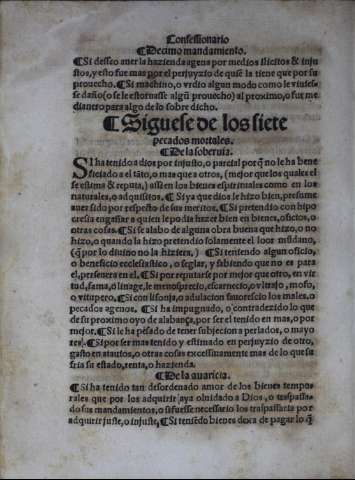 Confessionario
¶Decimo mandamiento.
¶Si desseo auer la hazienda agena por medios ilicitos & inju
stos, y esto fue mas por el perjuyzio de quiẽ la tiene que por su
prouecho. ¶Si machino, o vrdio algun modo como le viniesse
daño (o se le estornasse algũ prouecho) al proximo, o fue me
dianero para algo de lo sobre dicho.
¶Siguese de los siete
pecados mortales.
¶De la soberuia.
SI ha tenido a dios por injusto, o parcial porq̃ no le ha bene
ficiado a el tãto, o mas que a otros, (mejor que los quales el
se estima & reputa,) assi en los bienes espirituales como en los
naturales, o adquisitos. ¶Si ya que dios le hizo bien, presume
auer sido por respecto de sus meritos. ¶Si pretendio con hipo
cresia engañar a quien le podia hazer bien en bienes, oficios, o
otras cosas. ¶Si se alabo de alguna obra buena que hizo, o no
hizo, o quando la hizo pretendio solamente el loor mũdano,
(q̃ por lo diuino no la hiziera.) ¶Si teniendo algun oficio,
o beneficio ecclesiastico, o seglar, y sabiendo que no es para
el, perseuera en el. ¶Si por reputarse por mejor que otro, en vir
tud, fama, o linage, le menosprecio, escarnecio, o vltrajo, mofo,
o vitupero. ¶Si con lisonja, o adulacion fauorescio los males, o
pecados agenos. ¶Si ha impugnado, o contradezido lo que
de su proximo oyo de alabança, por ser el tenido en mas, o por
mejor. ¶Si le ha pesado de tener subjecion a perlados, o mayo
res. ¶Si por ser mas tenido y estimado en perjuyzio de otro,
gasto en atauios, o otras cosas excessiuamente mas de lo que su
fria su estado, renta, o hazienda.
¶De la auaricia.
¶Si ha tenido tan desordenado amor de los bienes tempo
rales que por los adquirir aya oluidado a Dios, o traspassa
do sus mandamientos, o si fuesse necessario los traspassaria por
adquirir juste, o injuste. ¶Si teniẽdo bienes dexa de pagar lo q̃